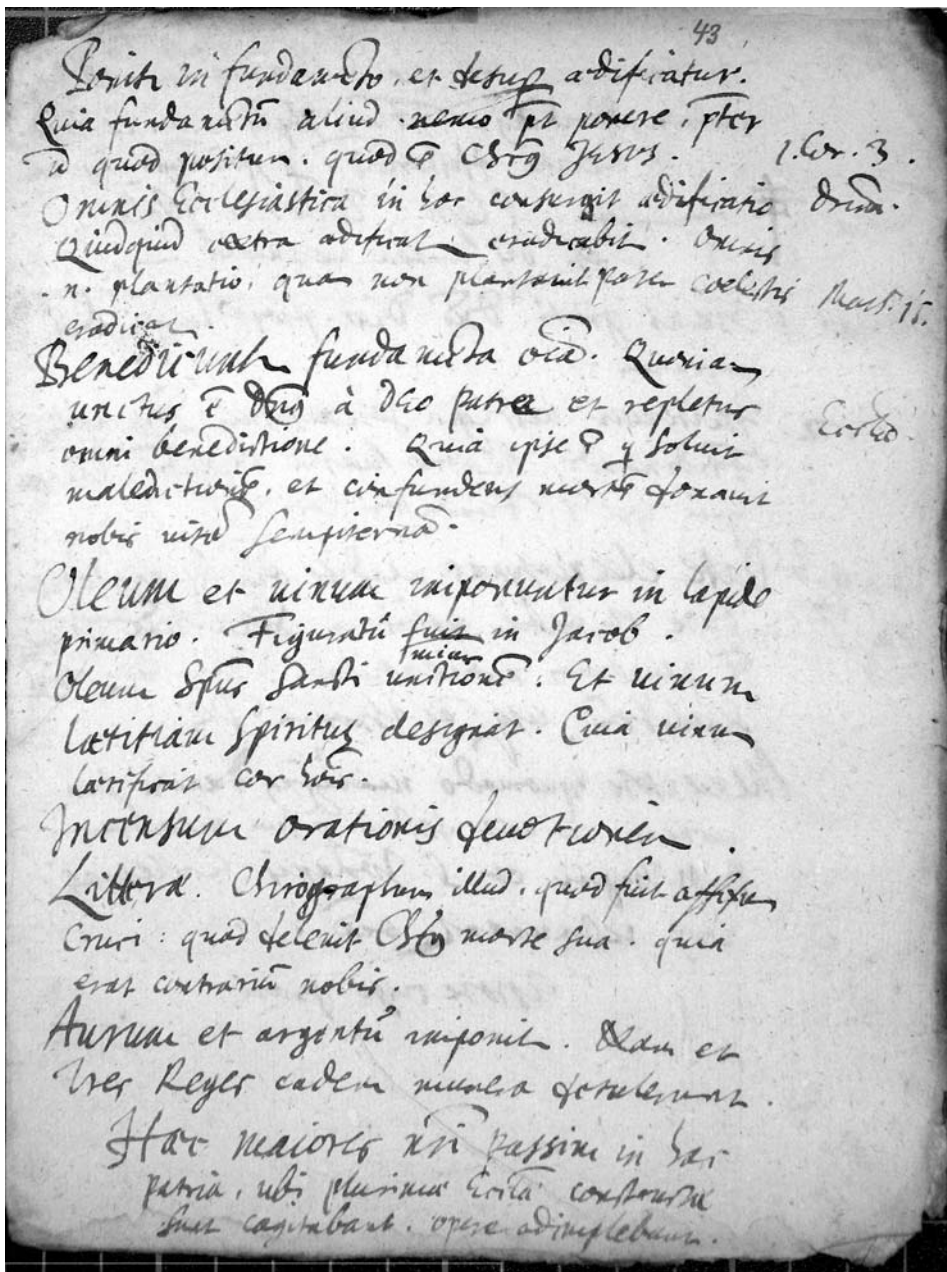 43
Ponitur in fundamento, et desup ædificatur.
Quia fundamentū aliud nemo pt ponere, pter
id quod positum. quod ē Chrũs Jesus. 1. Cor. 3.
Omnis Ecclesiastica in hoc consurgit ædificatio
Quidquid extra ædificat eradicabit. omnis
n. plantatio, quam non plantavit pater coelestis Matt. 15.
eradicat.
Benedicunt fundamenta oīa. Quoniam
unctus ē Dnũs à DEO Patre et repletus
omni benedictione. Quia ipse ē q soluit
maledictionē, et confundens mortē donauit
nobis uitā sempiternā.
Oleum et uinum imponuntur in lapide
primario. Figuratū fuit in Jacob.
Oleum Spũs Sancti unctionē. Et uinum
lætitiam Spiritus designat. Quia uinum
lætificat cor hoīs.
Incensum orationis deuotionem.
Litteræ. Chirographum illud, quod fuit affixum
Cruci: quod deleuit Chrũs morte sua. quia
erat contrariū nobis.
Aurum et argentū imponit. Nam et
tres Reges eadem munera detulerunt.
Hæc maiores nrī passim in hac
patria, ubi plurimæ Eccliæ constructæ
sunt cogitabant. opere adimplebant.